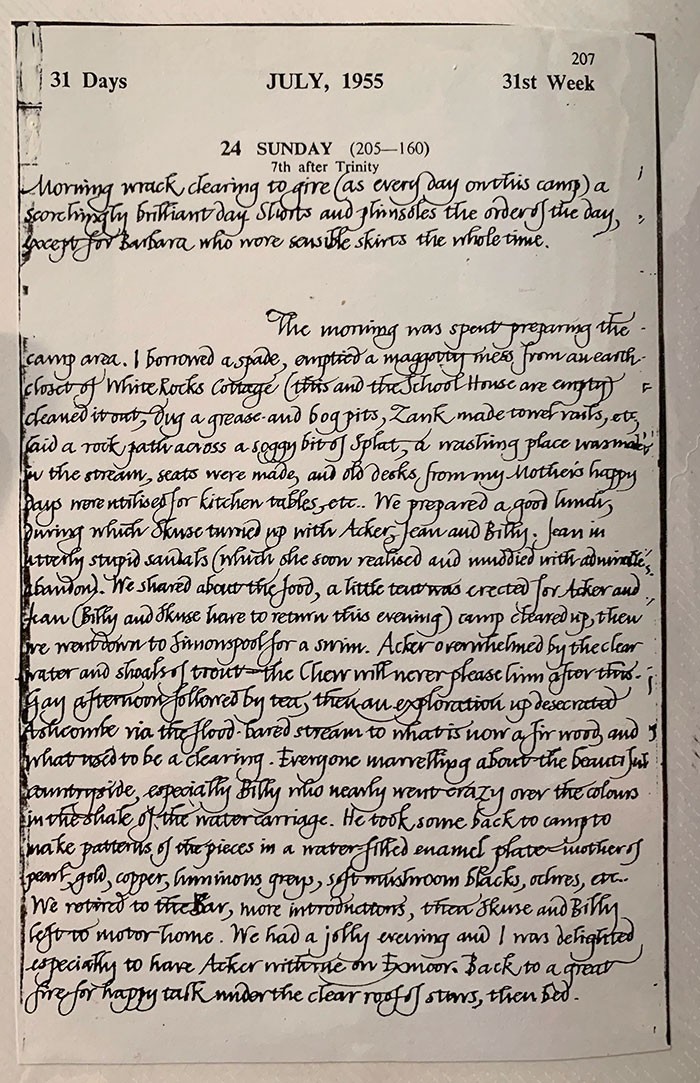 207
31 Days JULY, 1955 31st Week
24 SUNDAY (205—160)
7th after Trinity
Morning wrack clearing to give (as every day on this camp) a
scorchingly brilliant day. Shorts and plimsoles the order of the day,
except for Barbara who wore sensible skirts the whole time.
The morning was spent preparing the
camp area. I borrowed a spade, emptied a maggotty mess from an earth
closet of White Rocks Cottage (this and the School House are empty)
cleaned it out, dug a grease and bog pits, Zank made towel rails, etc,
laid a rock path across a soggy bit of Splat, a washing place was
in the stream, seats were made, and old desks from my Mother's happy
days were utilised for kitchen tables, etc.. We prepared a good lunch,
during which Skuse turned up with Acker, Jean and Billy. Jean in
utterly stupid sandals (which she soon realised and muddied with admirable
abandon). We shared about the food, a little tent was erected for Acker and
Jean (Billy and Skuse have to return this evening) camp cleared up, then
we went down to Simonspool for a swim. Acker overwhelmed by the clear
water and shoals of trout – the Chew will never please him after this.
Gay afternoon followed by tea, then an exploration up desecrated
Ashcombe via the flood-bared stream to what is now a fir wood, and
what used to be a clearing. Everyone marvelling about the beautiful
countryside, especially Billy who nearly went crazy over the colours
in the shale of the water carriage. He took some back to camp to
make patterns of the pieces in a water-filled enamel plate – mother of
pearl, gold, copper, luminous greys, soft mushroom blacks, ochres, etc..
We retired to the Bar, more introductions, then Skuse and Billy
left to motor home. We had a jolly evening and I was delighted
especially to have Acker with me on Exmoor. Back to a great
fire for happy talk under the clear roof of stars, then bed.